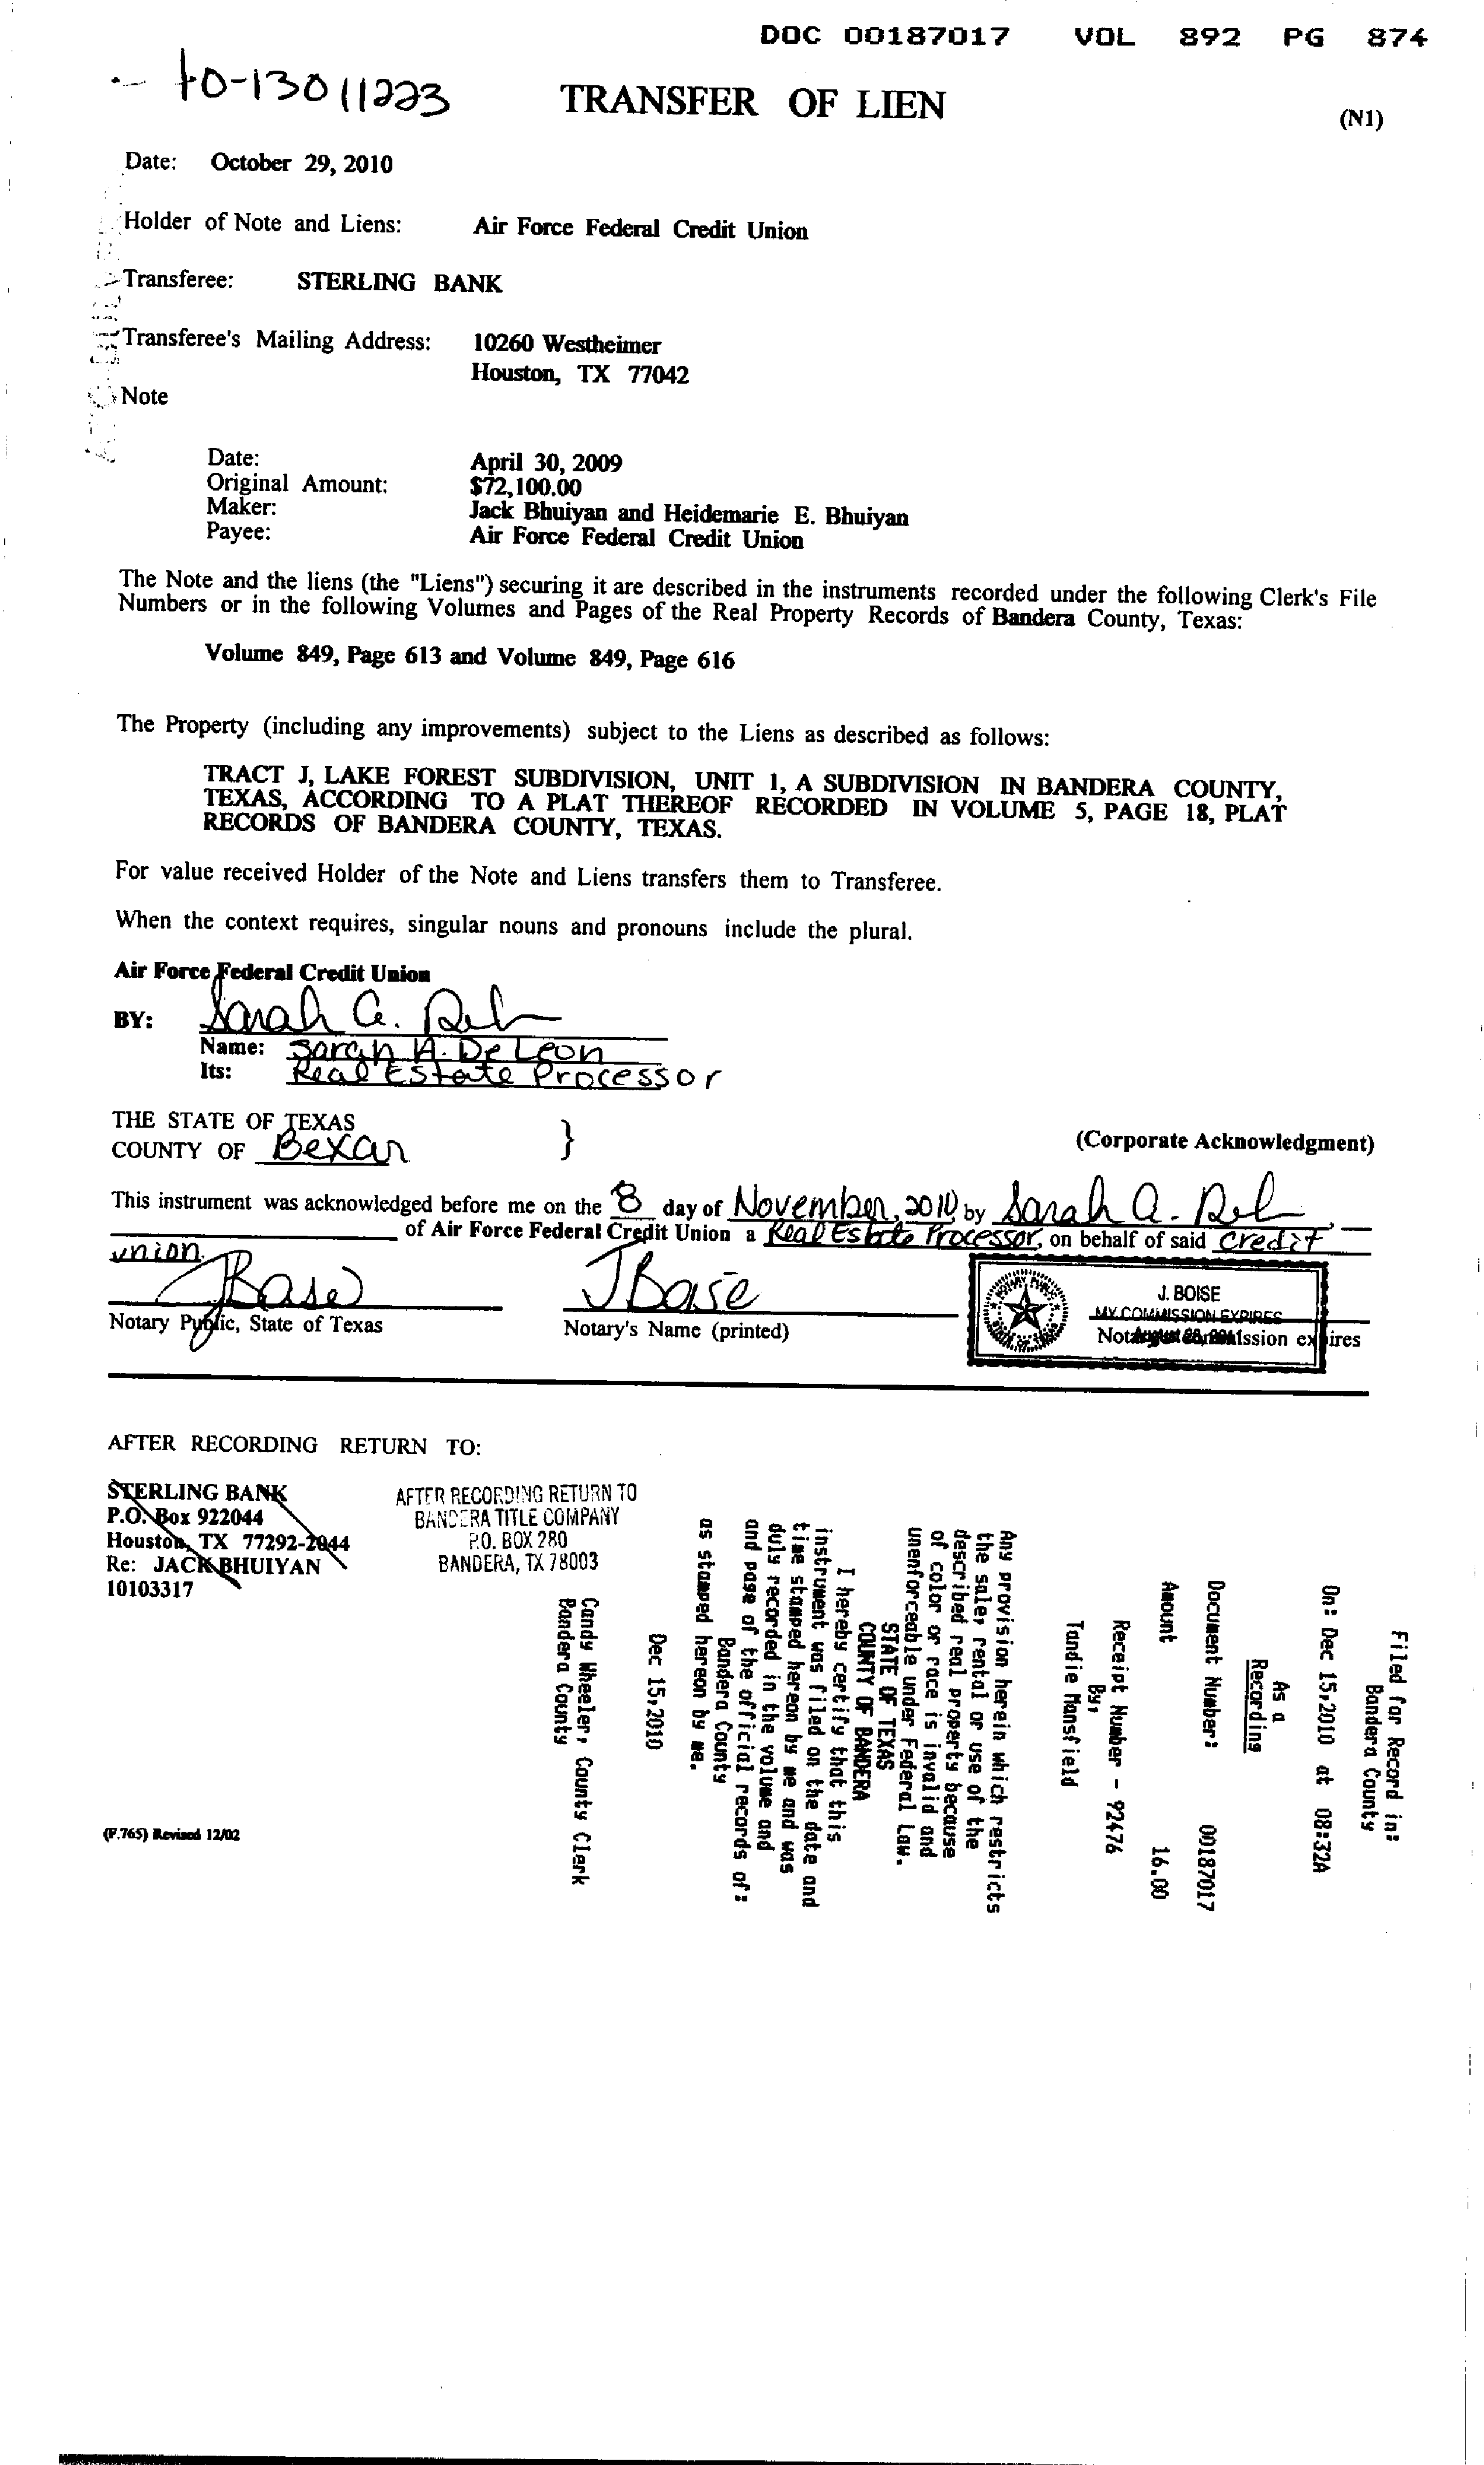 DOC 00187017 VOL 892 PG 874
to-13011223
TRANSFER OF LIEN
(N1)
Date: October 29, 2010
Holder of Note and Liens: Air Force Federal Credit Union
Transferee: STERLING BANK
Transferee's Mailing Address: 10260 Westheimer
Houston, TX 77042
Note
Date: April 30, 2009
Original Amount: $72,100.00
Maker: Jack Bhuiyan and Heidemarie E. Bhuiyan
Payee: Air Force Federal Credit Union
The Note and the liens (the "Liens") securing it are described in the instruments recorded under the following Clerk's File
Numbers or in the following Volumes and Pages of the Real Property Records of Bandera County, Texas:
Volume 849, Page 613 and Volume 849, Page 616
The Property (including any improvements) subject to the Liens as described as follows:
TRACT J, LAKE FOREST SUBDIVISION, UNIT 1, A SUBDIVISION IN BANDERA COUNTY,
TEXAS, ACCORDING TO A PLAT THEREOF RECORDED IN VOLUME 5, PAGE 18, PLAT
RECORDS OF BANDERA COUNTY, TEXAS.
For value received Holder of the Note and Liens transfers them to Transferee.
When the context requires, singular nouns and pronouns include the plural.
Air Force Federal Credit Union
BY: Sarah A.
Name: Sarah A. De Leon
Its: Real Estate Processor
THE STATE OF TEXAS }
COUNTY OF Bexar
(Corporate Acknowledgment)
This instrument was acknowledged before me on the 8 day of November, 2010, by Sarah A.
of Air Force Federal Credit Union a Real Estate Processor, on behalf of said credit
union.
JBoise JBoise
Notary Public, State of Texas Notary's Name (printed)
J. BOISE
MY COMMISSION EXPIRES
expires
AFTER RECORDING RETURN TO:
STERLING BANK
P.O. Box 922044
Houston, TX 77292-2044
Re: JACK BHUIYAN
10103317
AFTER RECORDING RETURN TO
BANDERA TITLE COMPANY
P.O. BOX 280
BANDERA, TX 78003
Filed for Record in:
Bandera County
On: Dec 15,2010 at 08:32A
As a
Recording
Document Number: 00187017
Amount 16.00
Receipt Number - 92476
By,
Tandie Mansfield
Any provision herein which restricts
the sale, rental or use of the
described real property because
of color or race is invalid and
unenforceable under Federal Law.
STATE OF TEXAS
COUNTY OF BANDERA
I hereby certify that this
instrument was filed on the date and
time stamped hereon by me and was
duly recorded in the volume and
and page of the official records of:
Bandera County
as stamped hereon by me.
Dec 15,2010
Candy Wheeler, County Clerk
Bandera County
(F.765) Revised 12/02